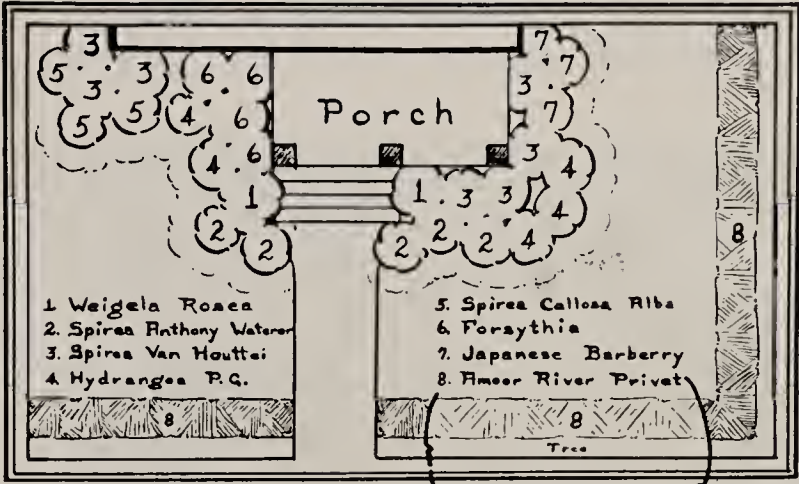 3
7
5
3
6
6
7
3
3
5
5
4
6
Porch
7
4
6
3
4
1
1
3
3
4
2
2
2
2
2
4
8
1 Weigela Rosea
2. Spirea Anthony Waterer
3. Spirea Van Houttei
4. Hydrangea P.G.
5. Spirea Callosa Alba
6. Forsythia
7. Japanese Barberry
8. Amoor River Privet
8
8
Tree